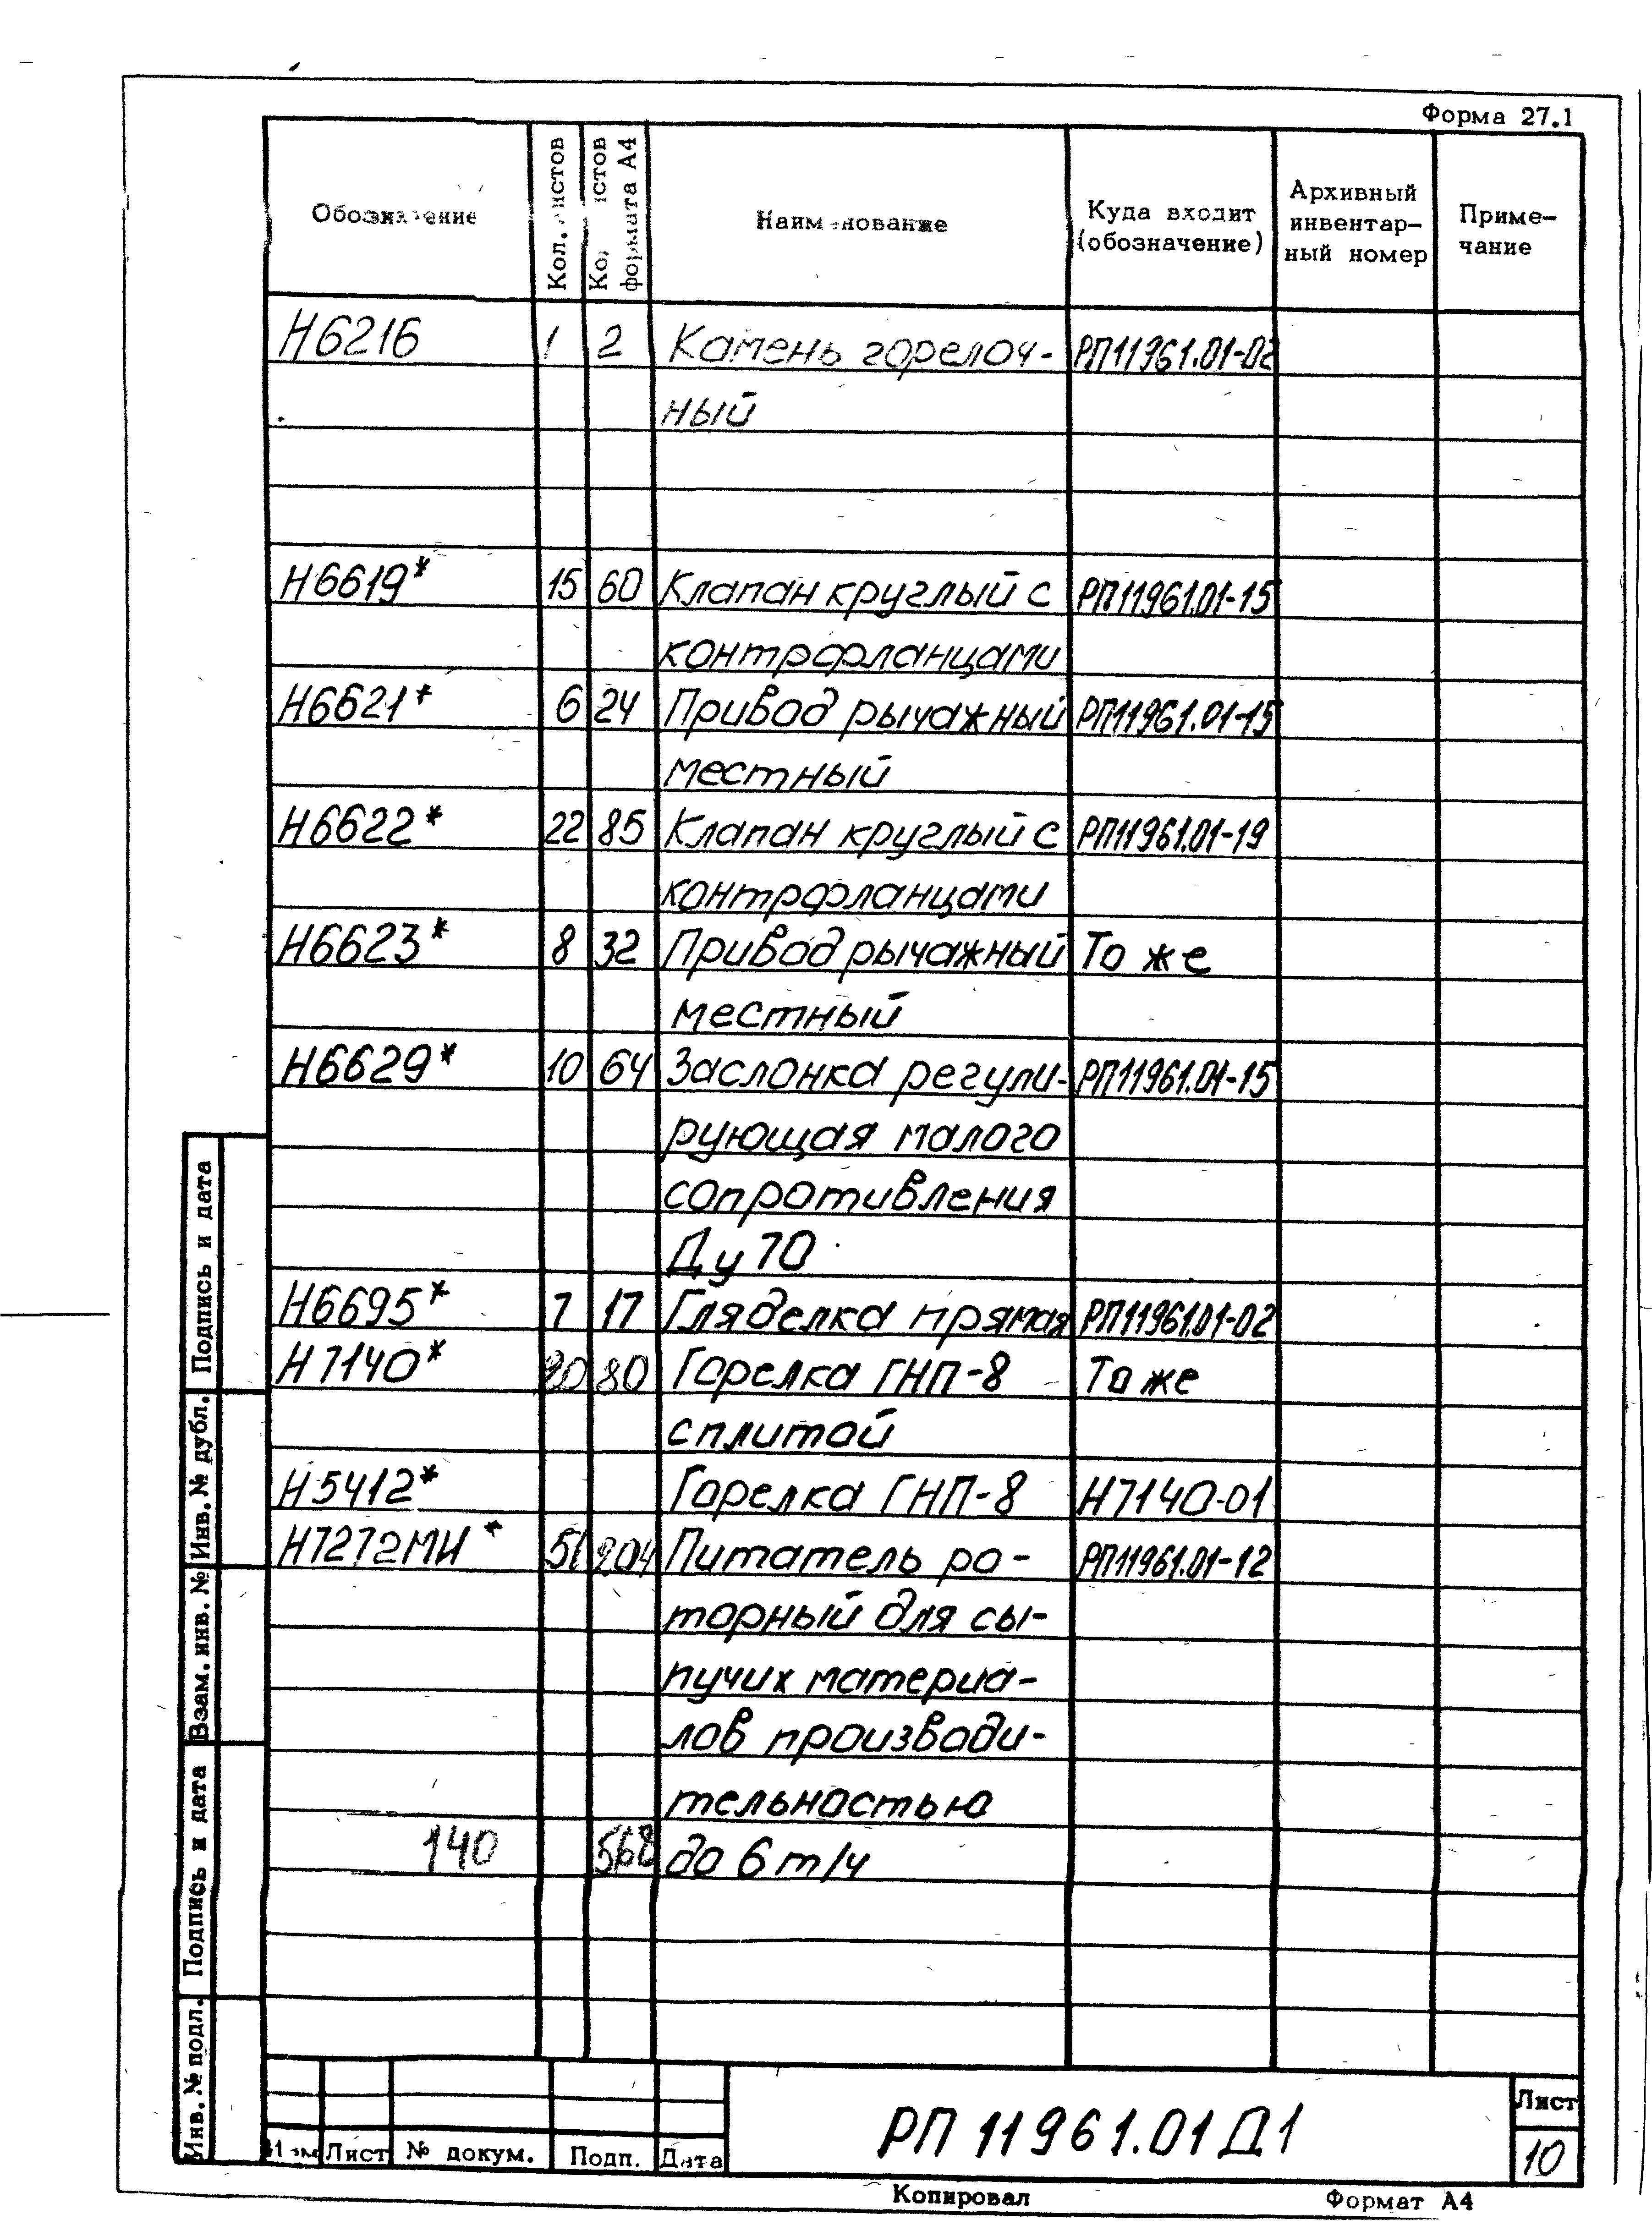 Форма 27.1
Обозначение
Кол. листов
Кол. листов
формата А4
Наименование
Куда входит
(обозначение)
Архивный
инвентар-
ный номер
Приме-
чание
Н6216 1 2 Камень горелоч- РП11961.01-02
ный
Н6619* 15 60 Клапан круглый с РП11961.01-15
контрфланцами
Н6621* 6 24 Привод рычажный РП11961.01-15
местный
Н6622* 22 85 Клапан круглый с РП11961.01-19
контрфланцами
Н6623* 8 32 Привод рычажный То же
местный
Н6629* 10 64 Заслонка регули- РП11961.01-15
рующая малого
сопротивления
Ду 70
Н6695* 7 17 Гляделка прямая РП11961.01-02
Н7140* 20 80 Горелка ГНП-8 То же
с плитой
Н5412* Горелка ГНП-8 Н7140-01
Н7272МИ* 51 204 Питатель ро- РП11961.01-12
торный для сы-
пучих материа-
лов производи-
тельностью
140 568 до 6 т/ч
Подпись и дата
Инв. № дубл.
Взам. инв. №
Подпись и дата
Инв. № подл.
Изм Лист № докум. Подп. Дата
РП 11961.01 Д1
Лист
10
Копировал
Формат А4